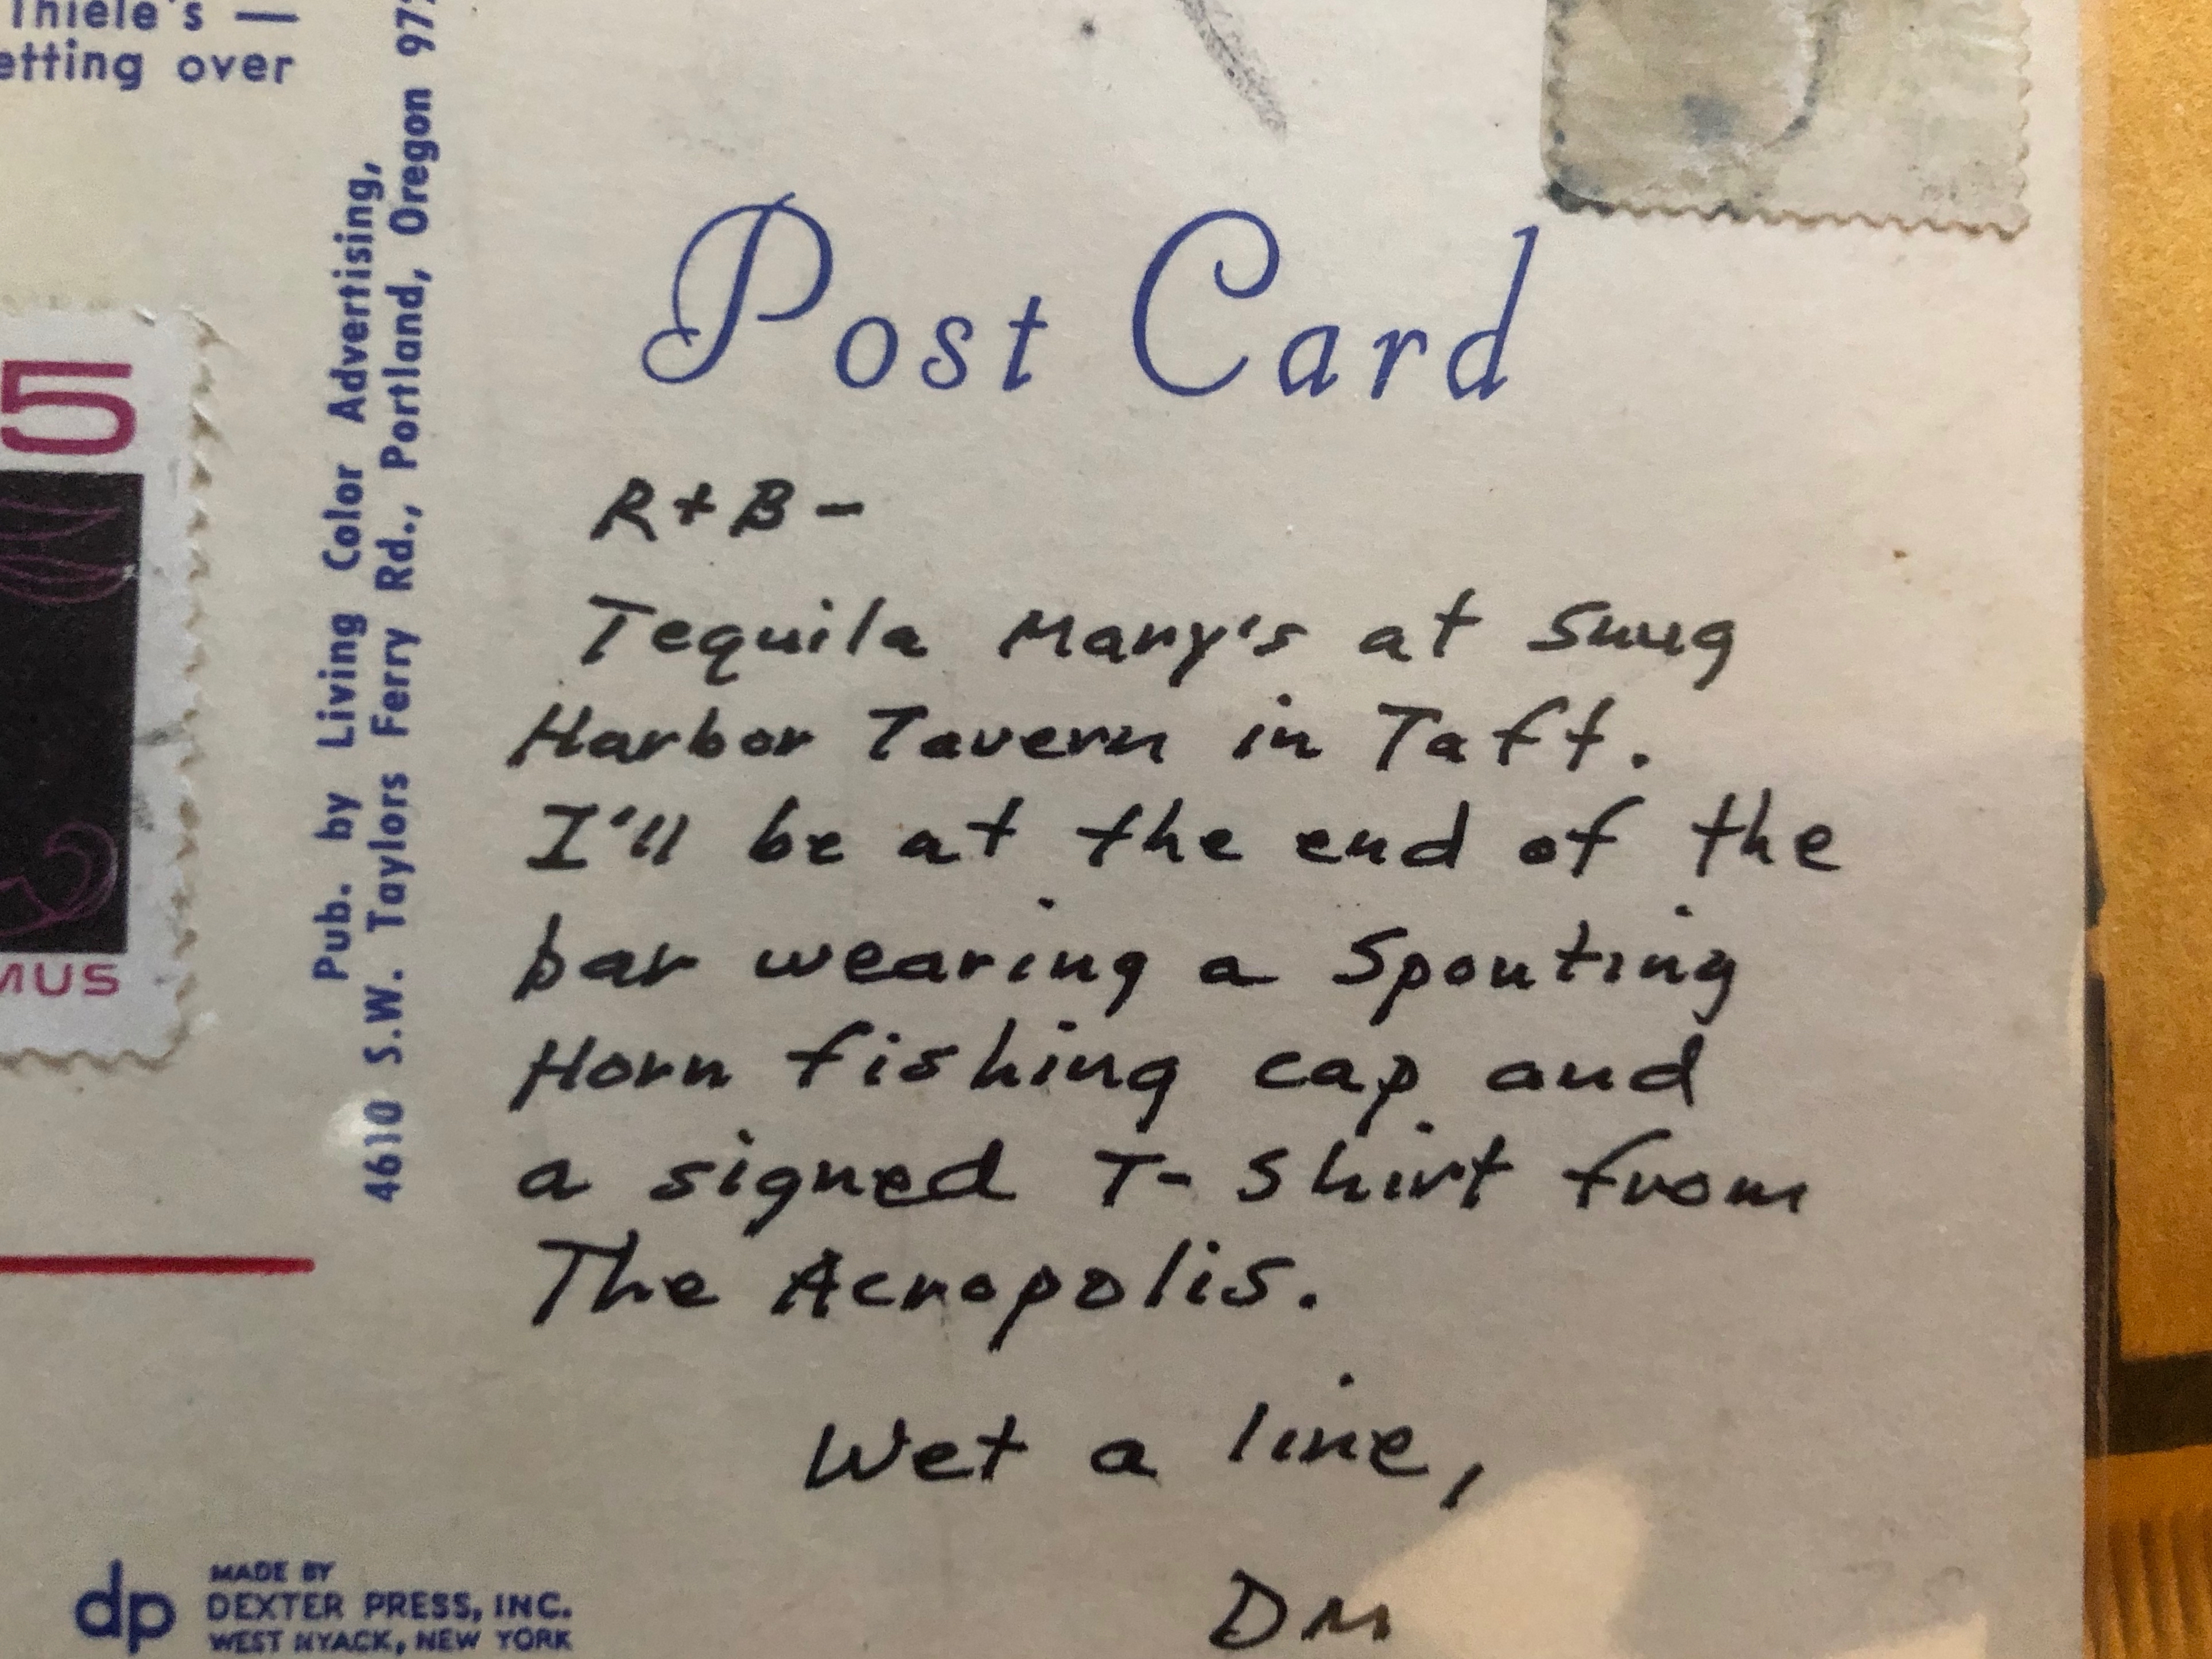 Thiele's —
etting over
5
MUS
Pub. by Living Color Advertising,
4610 S.W. Taylors Ferry Rd., Portland, Oregon 972
Post Card
R + B -
Tequila Mary's at Snug
Harbor Tavern in Taft.
I'll be at the end of the
bar wearing a Spouting
Horn fishing cap and
a signed T-Shirt from
The Acropolis.
Wet a line,
DM
dp
MADE BY
DEXTER PRESS, INC.
WEST NYACK, NEW YORK